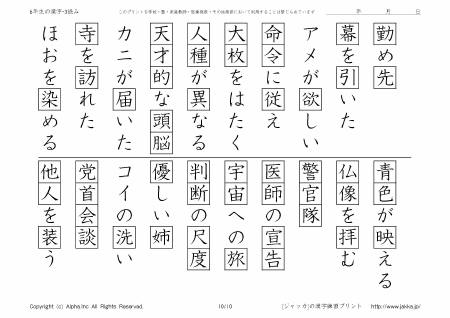 6年生の漢字-3読み
年 月 日
勤め先
幕を引いた
アメが欲しい
命令に従え
大枚をはたく
人種が異なる
天才的な頭脳
カニが届いた
寺を訪れた
ほおを染める
青色が映える
仏像を拝む
警官隊
医師の宣告
宇宙への旅
判断の尺度
優しい姉
コイの洗い
党首会談
他人を装う
Copyright (c) Alpha.Inc All Rights Reserved.
10/10
[ジャッカ]の漢字練習プリント http://www.jakka.jp/